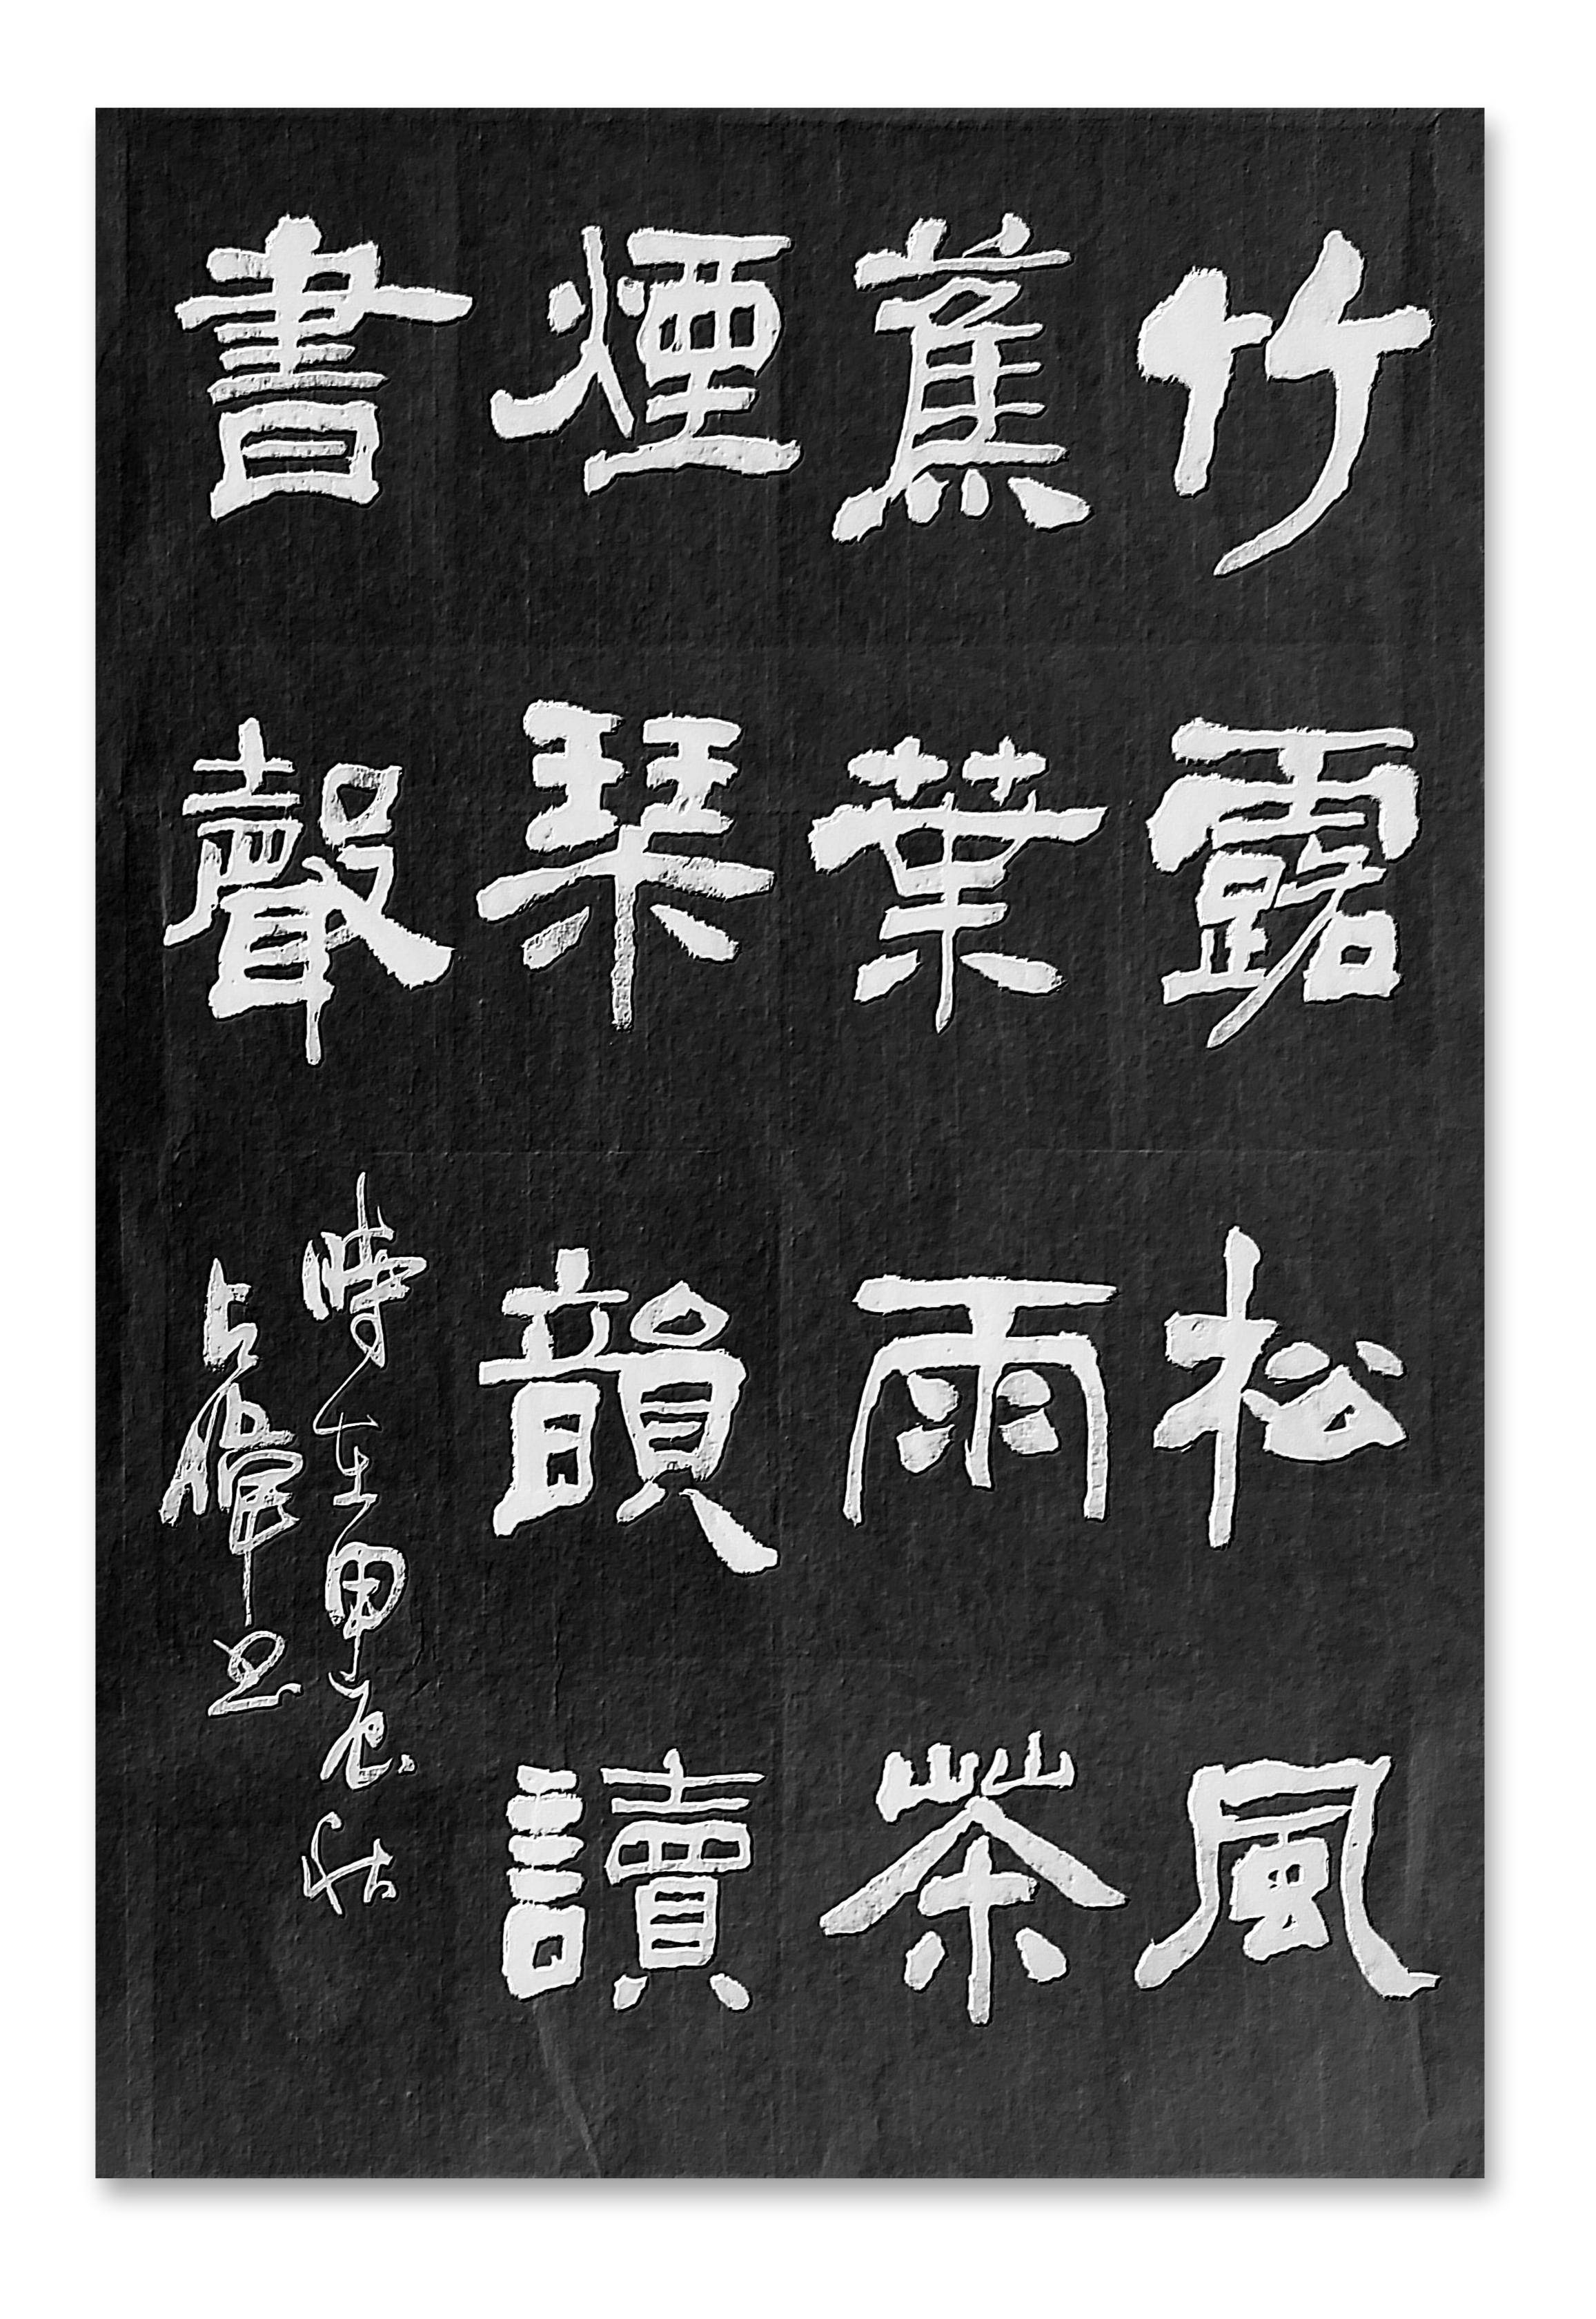 竹露松風
蕉葉雨茶
煙琴韻讀
書聲
時在甲辰秋
占偉书